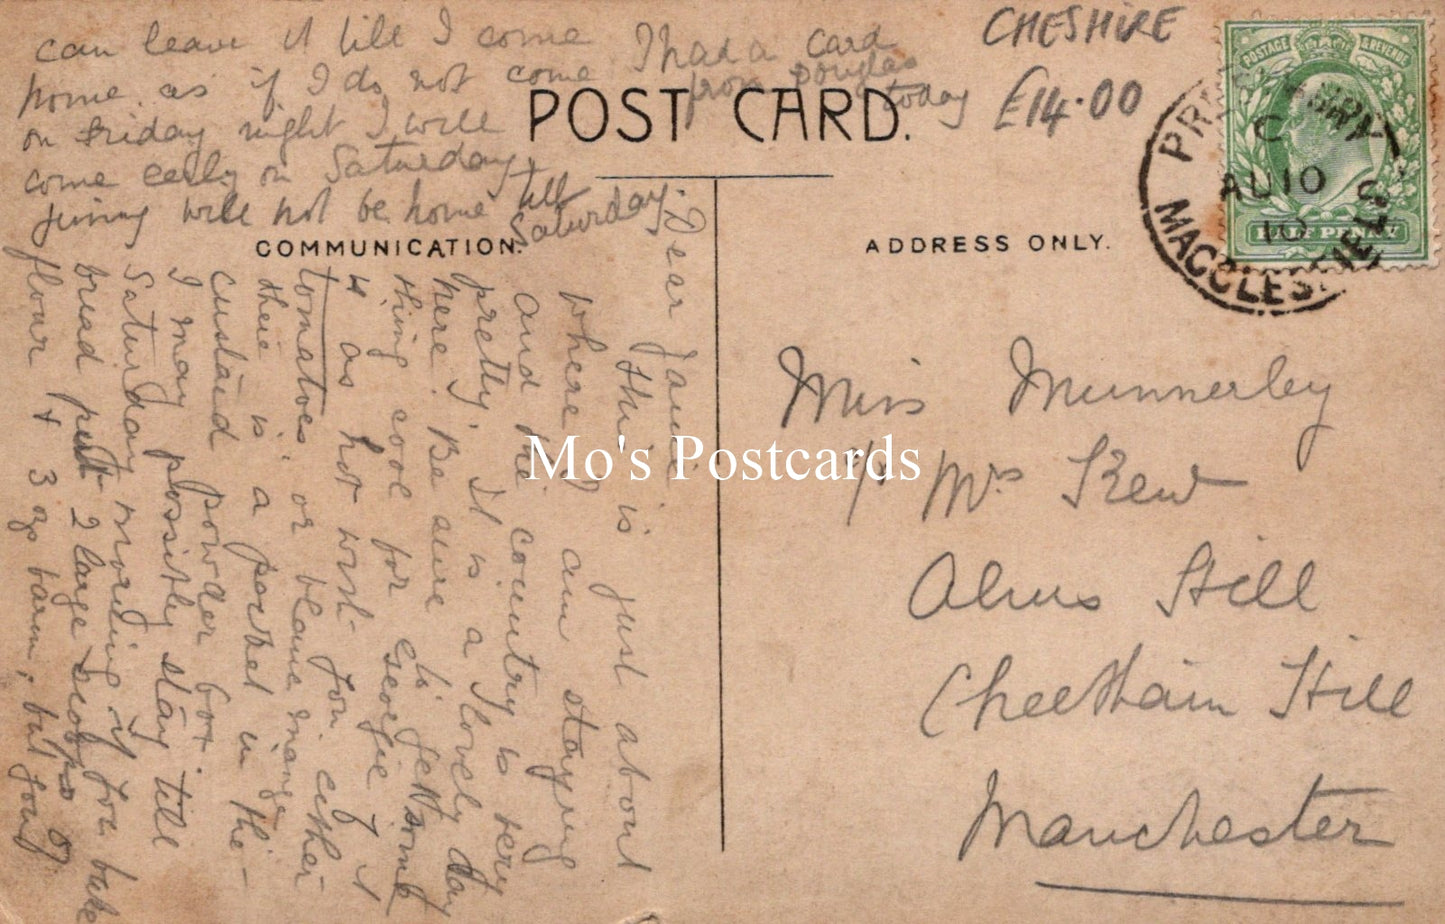 POST CARD.
COMMUNICATION.
ADDRESS ONLY.
CHESHIRE
£14.00
POSTAGE & REVENUE
HALF PENNY
PRESTBURY
C
AU 10
10
MACCLESFIELD S.O
Miss Munnerley
c/o Mrs Skew
Alms Hill
Cheetham Hill
Manchester
Dear Janie
this is just about
where I am staying
and the country is very
pretty. It is a lovely day
here. Be sure to get some
thing cool for Georgie if it
is as hot won't you either
tomatoes or blanc mange
there is a packet in the
custard powder box.
I may possibly stay till
Saturday morning if you bake
bread put 2 large scoops of
flour & 3 ozs barm, but you
can leave it till I come
home as if I do not come
on Friday night I will
come early on Saturday
Jinny will not be home till
Saturday.
I had a card
from Douglas
today
Mo's Postcards